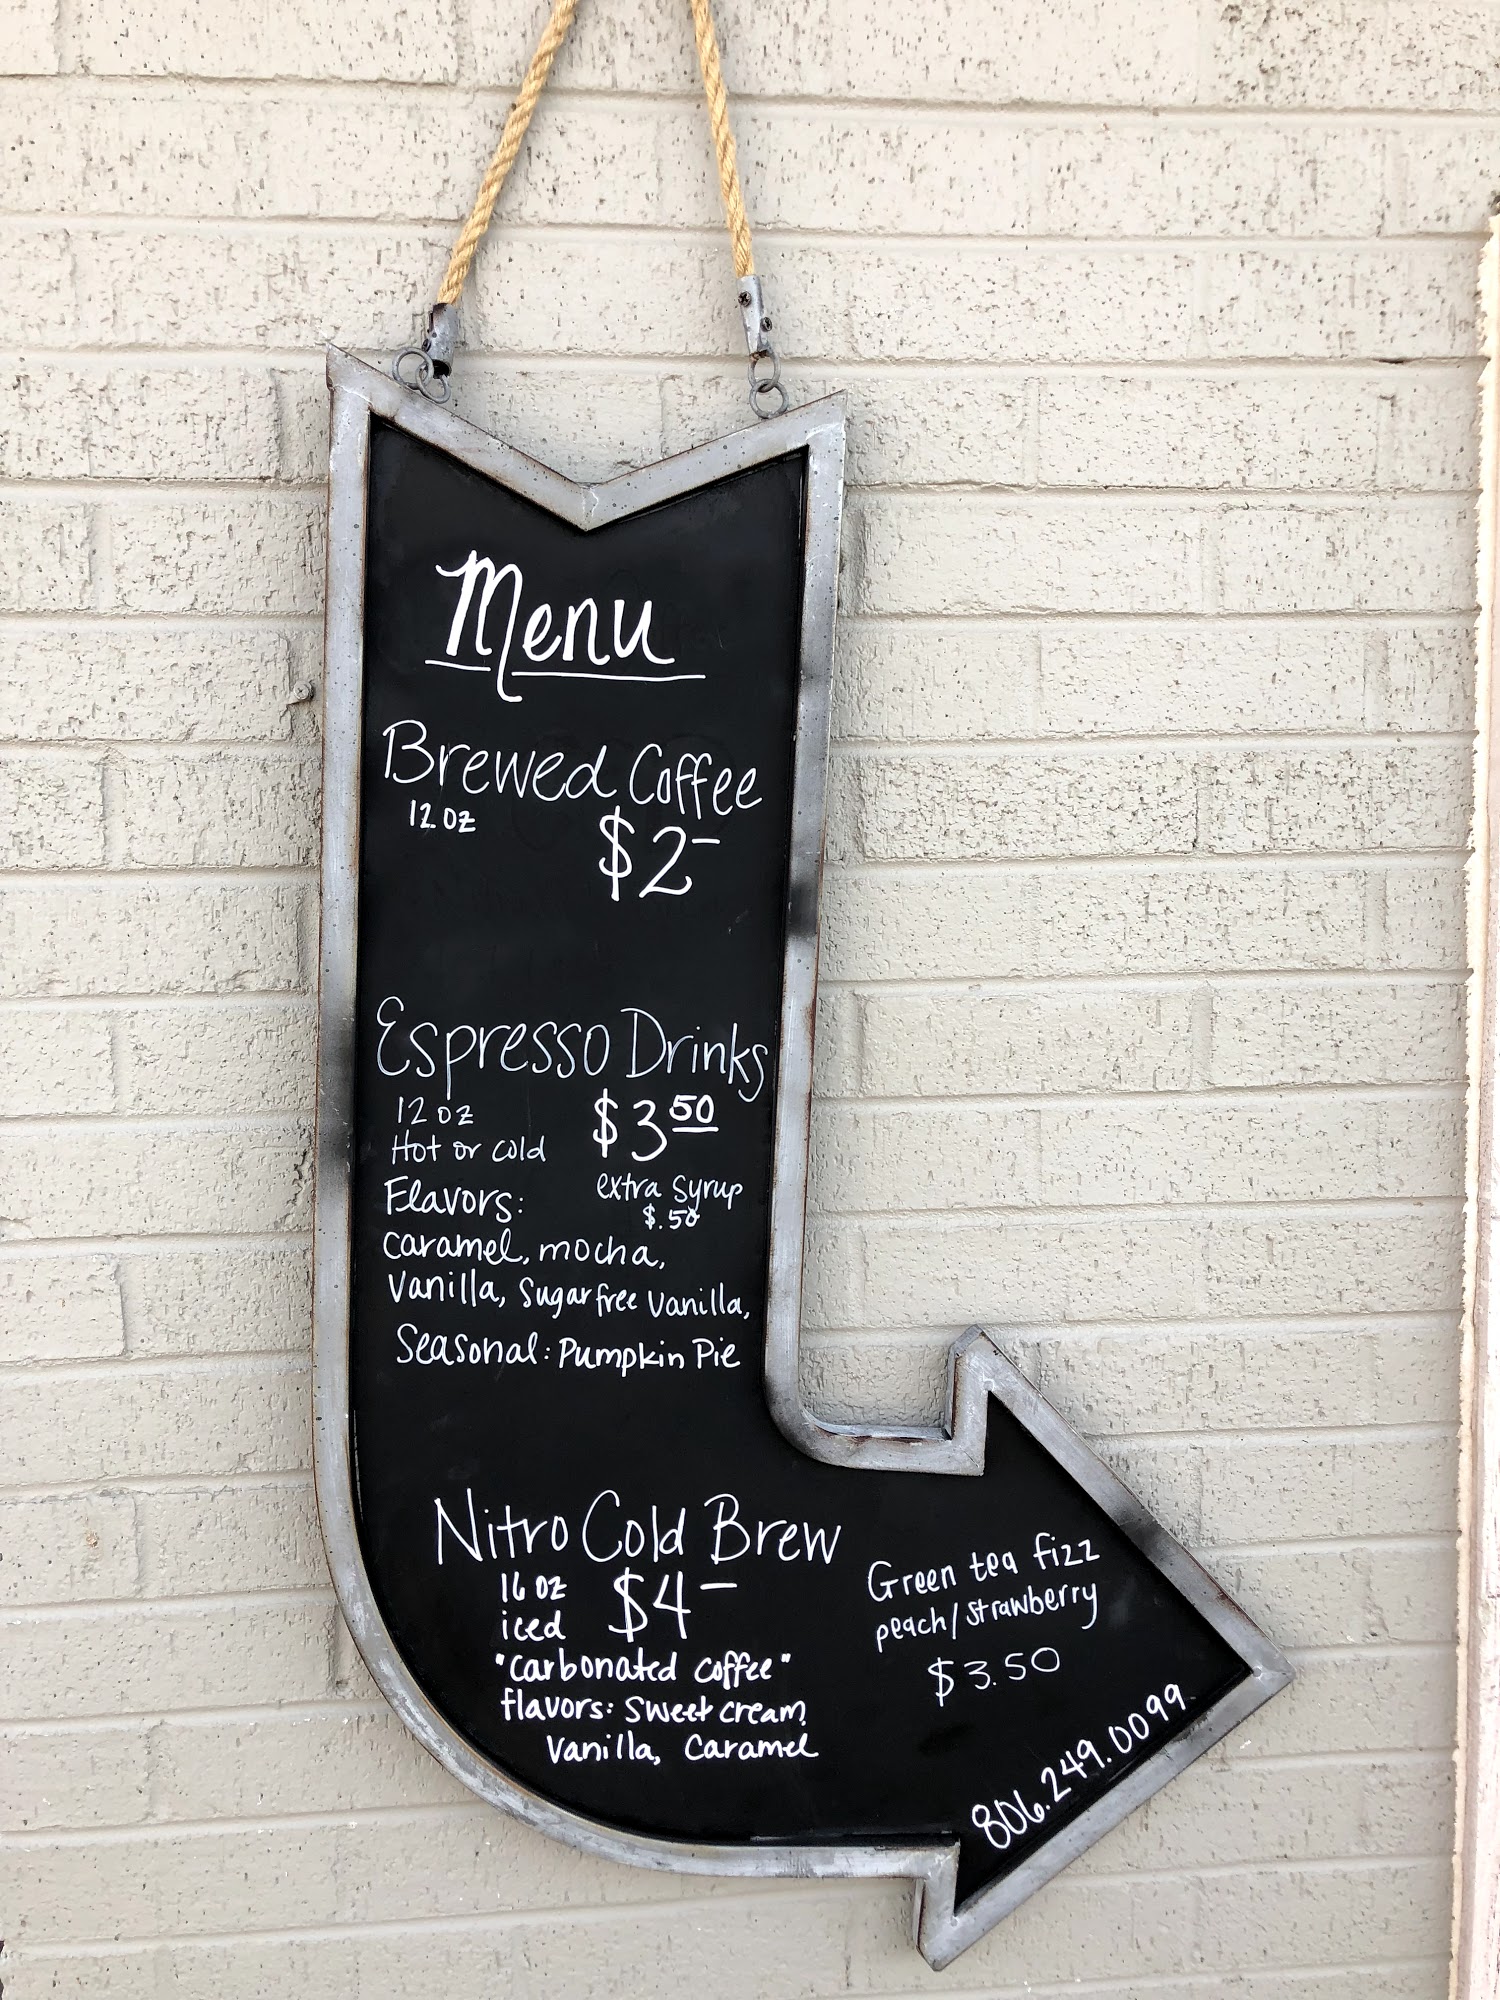 Menu
Brewed Coffee
12 oz
$2-
Espresso Drinks
12 oz
Hot or cold
$3 50
Flavors:
extra syrup
$.50
caramel, mocha,
Vanilla, Sugar free vanilla,
Seasonal: Pumpkin Pie
Nitro Cold Brew
16 oz
iced
$4-
"carbonated coffee"
flavors: Sweet cream,
Vanilla, Caramel
Green tea fizz
peach/strawberry
$3.50
806.249.0099